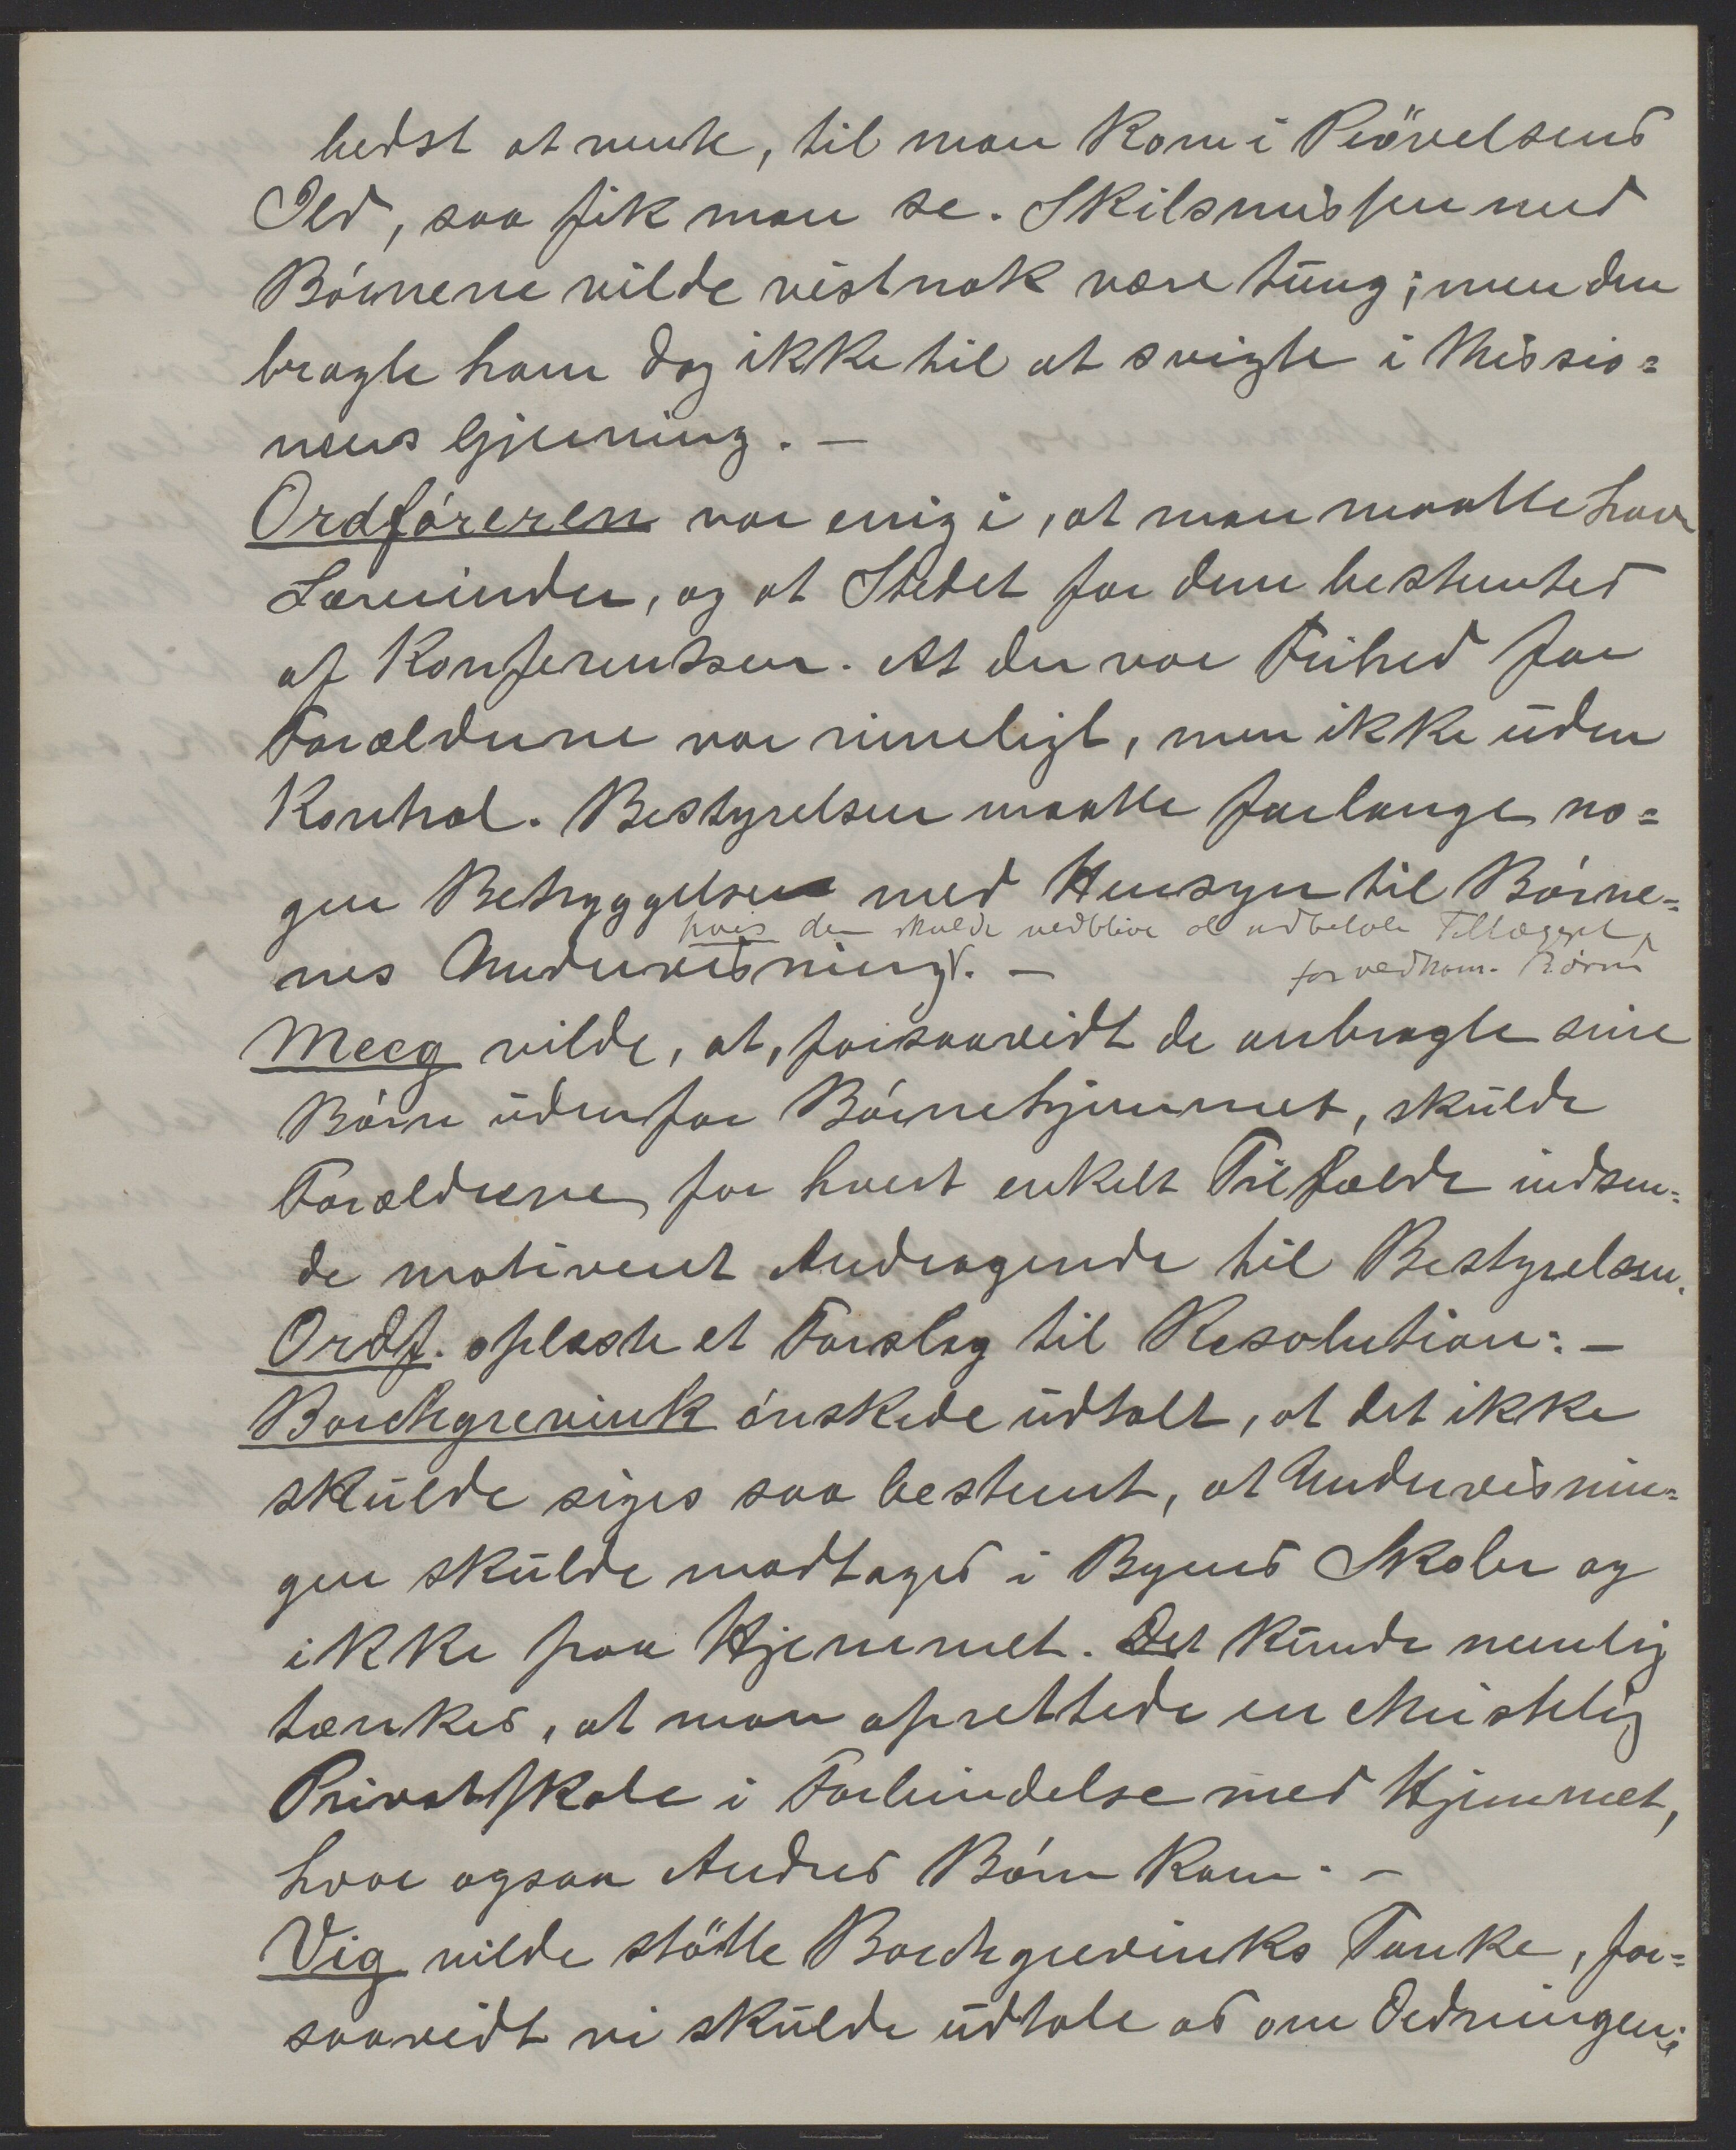 bedst at vente, til man kom i Prövelsens
Ild, saa fik man se. Skilsmissen med
Börnene vilde vistnok være tung; men den
bragte ham dog ikke til at svigte i Missio=
nens Gjerning. —
Ordföreren var enig i, at man maatte have
Lærerinder, og at Stedet for dem bestemtes
af Konferentsen. At der var Frihed for
Forældrene var rimeligt, men ikke uden
Kontrol. Bestyrelsen maatte forlange no=
gen Betryggelse med Hensyn til Börne=
hvis den skulde vedblive at udbetale Tillægget
nes Undervisning. —
for vedkom. Börn
Meeg vilde, at, forsaavidt de anbragte sine
Börn udenfor Börnehjemmet, skulde
Forældrene for hvert enkelt Tilfælde indsen=
de motiveret Andragende til Bestyrelsen.
Ordf. oplæste et Forslag til Resolution: —
Borchgrevink önskede udtalt, at det ikke
skulde siges saa bestemt, at Undervisnin=
gen skulde modtages i Byens Skoler og
ikke paa Hjemmet. Det kunde nemlig
tænkes, at man oprettede en christelig
Privatskole i Forbindelse med Hjemmet,
hvor ogsaa Andres Börn kom. —
Vig vilde stötte Borchgrevinks Tanke, for=
saavidt vi skulde udtale os om Ordningen;